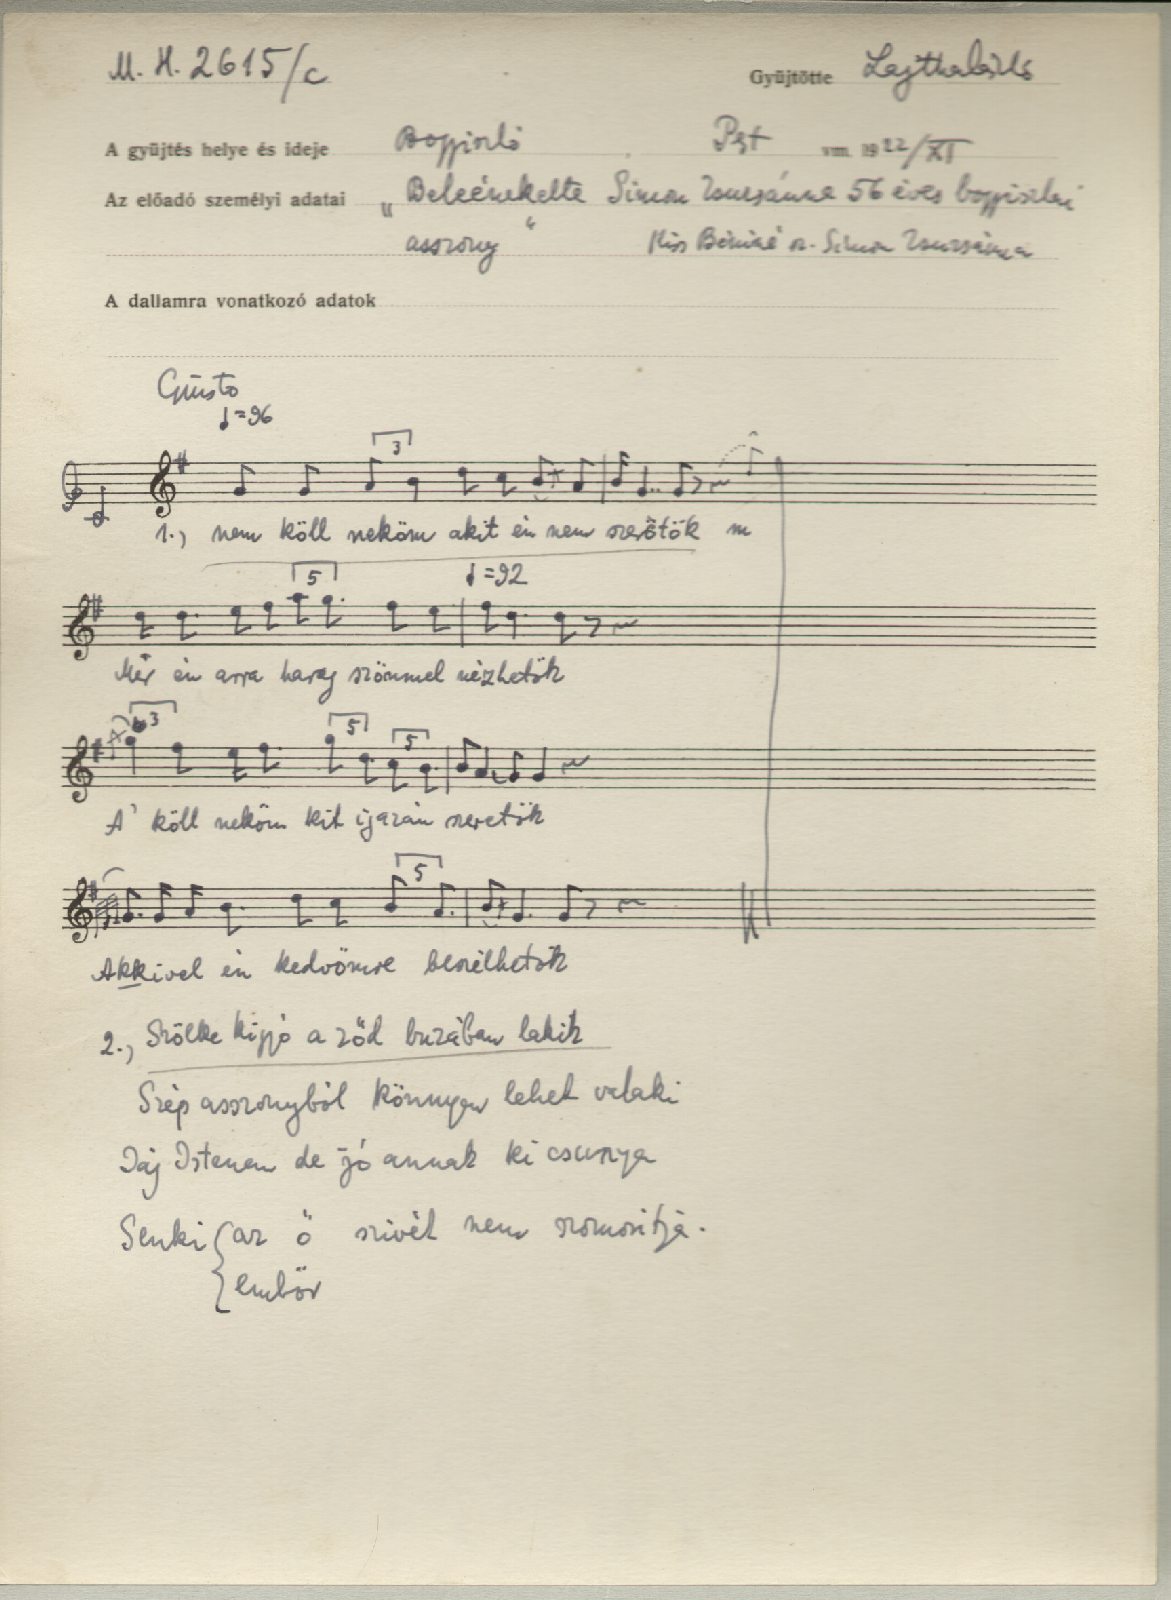 M. H. 2615/c
Gyüjtötte Lajtha László
A gyüjtés helye és ideje Bogyiszló Pest vm. 1922/XI
Az előadó személyi adatai „Beleénekelte Simon Zsuzsánna 56 éves bogyiszlai
asszony" Kiss Béniné sz. Simon Zsuzsánna
A dallamra vonatkozó adatok
Giusto
♩=96
3
1., nem köll neköm akit én nem szerětök m
5 ♩=92
Mer én arra harag szömmel nézhetök
3 5 5
A' köll neköm kit igazán szeretök
5
Akkivel én kedvömre beszélhetök
2., Szölke kigyó a ződ buzában lakik
Szép asszonyból könnyen lehet valaki
Jaj Istenem de jó annak ki csunya
Senki az ő szivét nem szomoritja.
embör